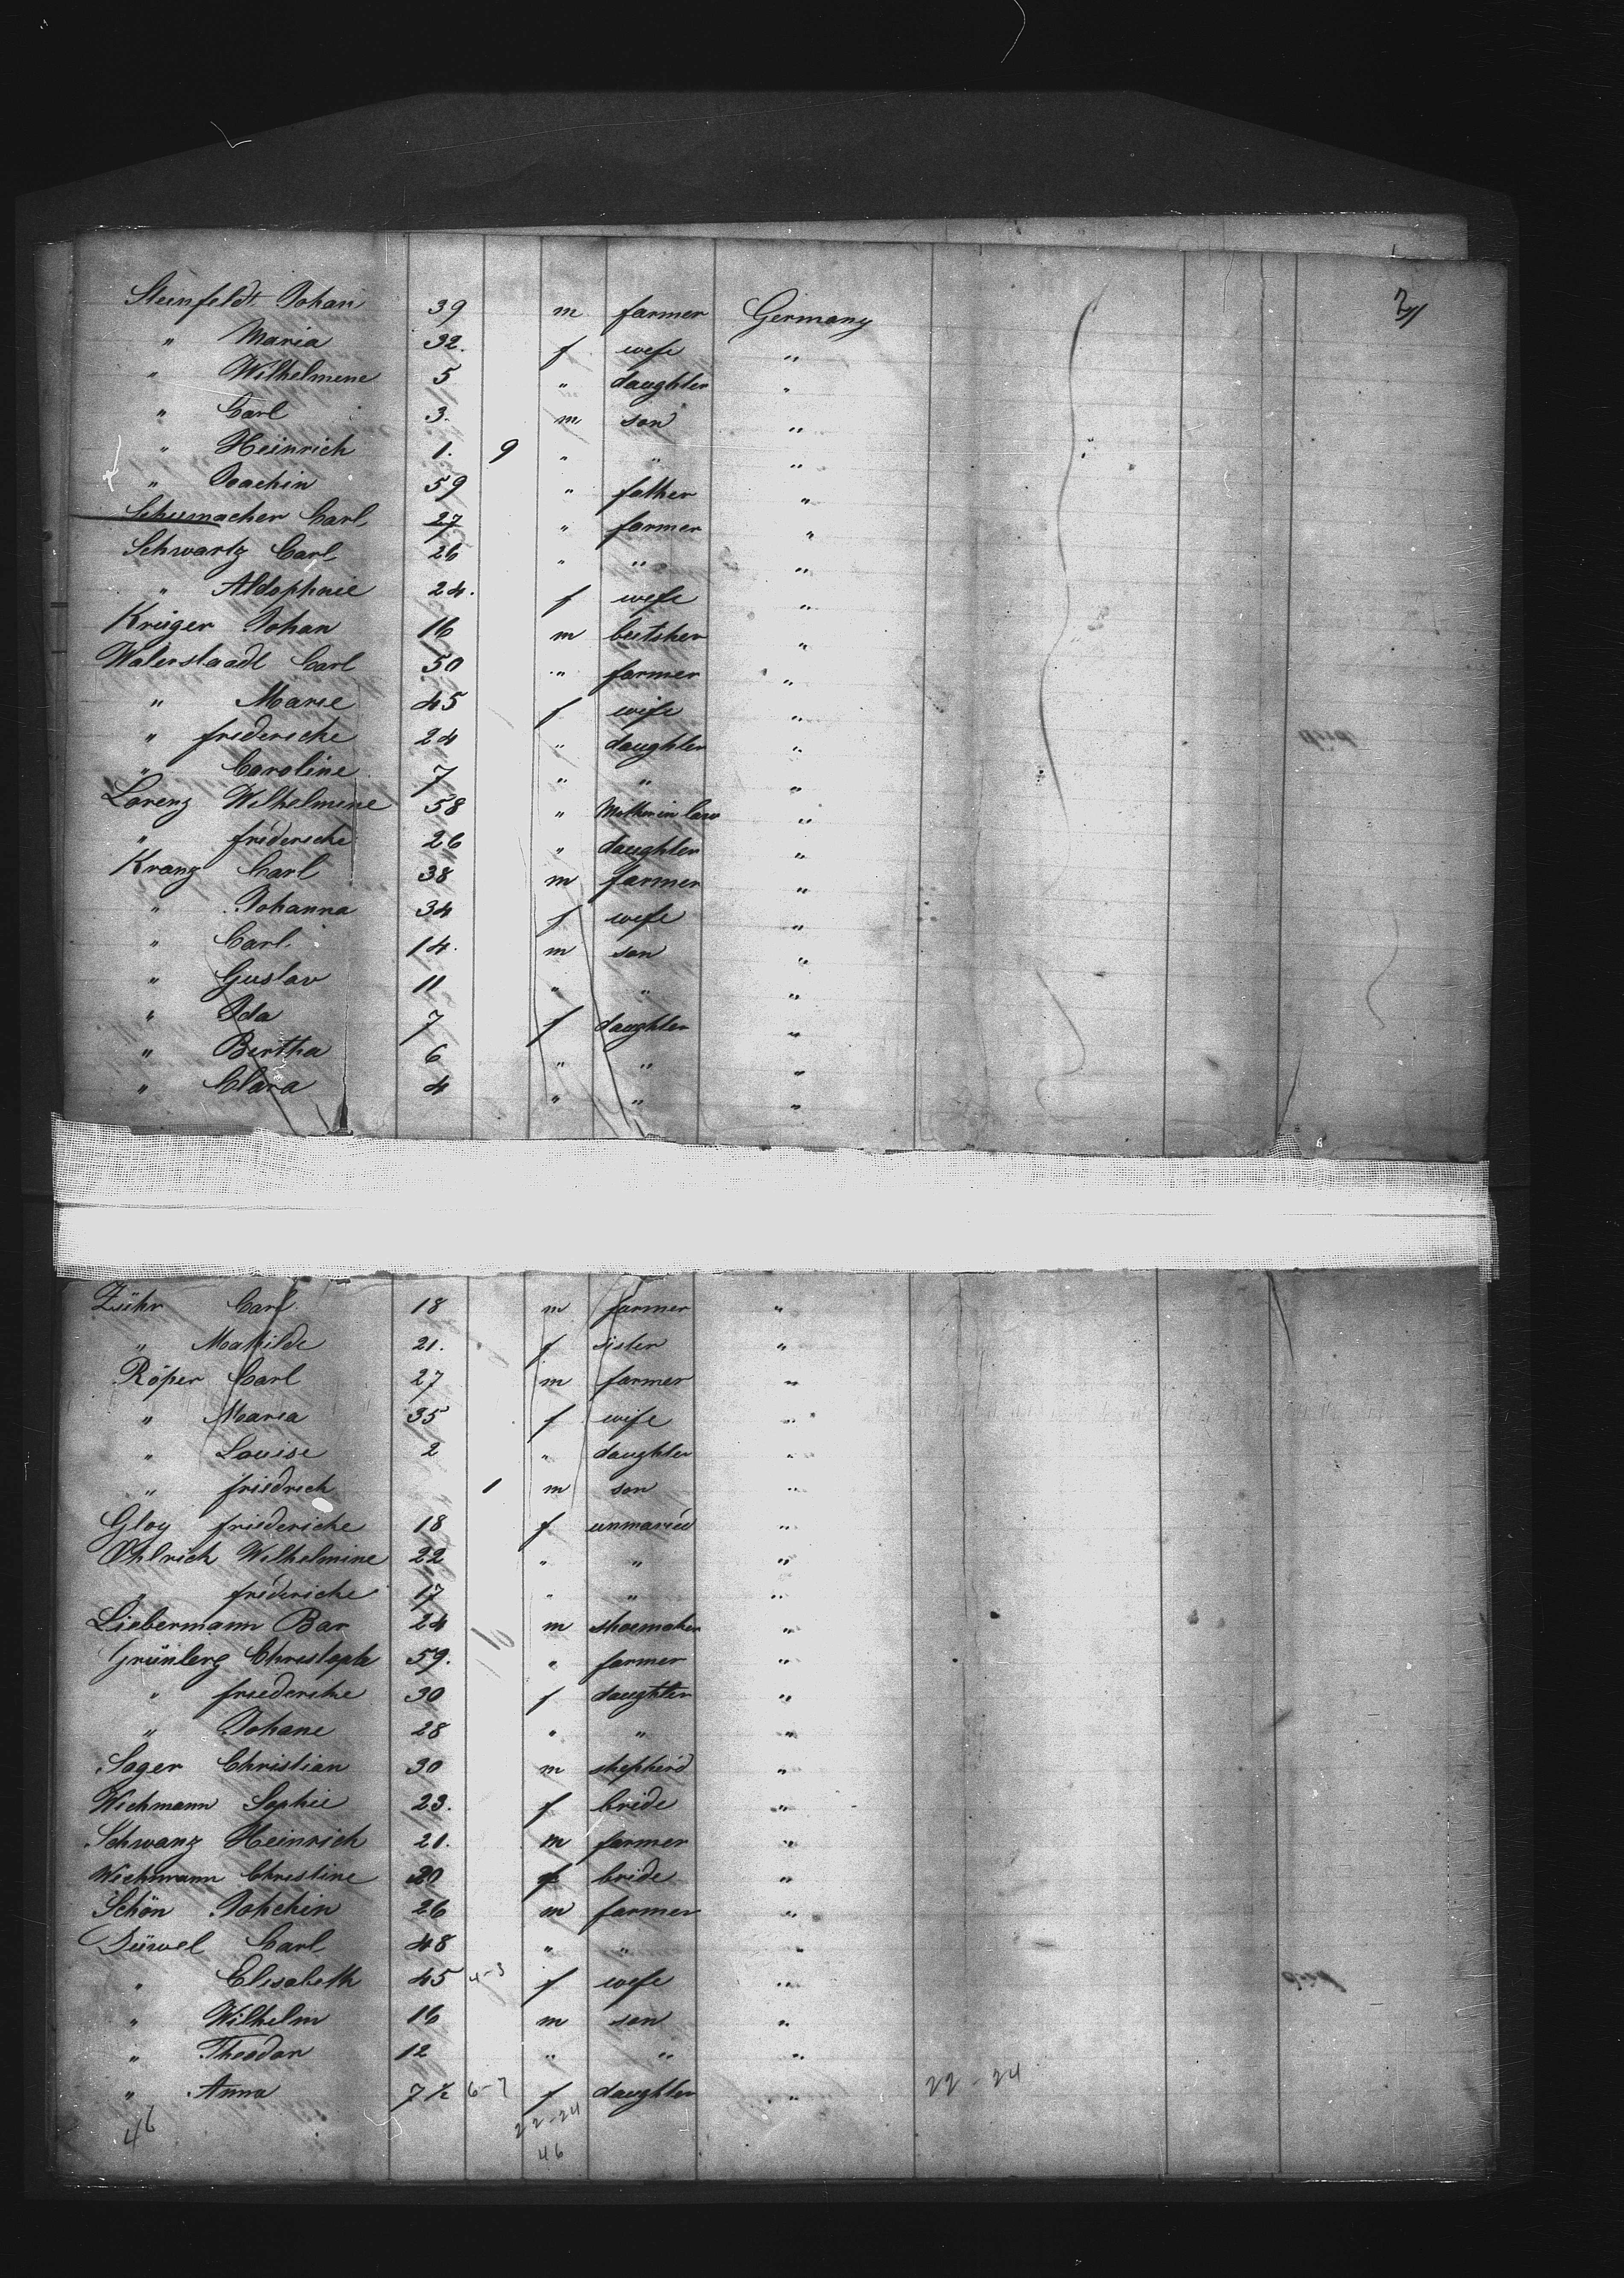 2/
Steinfeldt Johan 39 m farmer Germany
" Maria 32. f wife "
" Wilhelmene 5 " daughter "
" Carl 3. m son "
" Heinrich 1. 9 " " "
" Joachin 59 " father "
Schumacher Carl 27 " farmer "
Schwartz Carl 26 " " "
" 24. f wife "
Krüger Johan 16 m "
Waterstaadt Carl 50 " farmer "
" Marie 45 f wife "
" frederiche 24 " daughter "
" Caroline 7 " " "
Lorenz Wilhelmine 58 " Mother in law "
" frideriche 26 " daughter "
Kranz Carl 38 m farmer "
" Johanna 34 f wife "
" Carl 14. m son "
" Gustav 11 " " "
" Ida 7 f daughter "
" Bertha 6 " " "
" Clara 4 " " "
Zühr Carl 18 m farmer "
" Mathilde 21. f sister "
Röper Carl 27 m farmer "
" Maria 35 f wife "
" Louise 2 " daughter "
" friedrich 1 m son "
Gloy friedericke 18 f unmaried "
Ohlrich Wilhelmine 22 " " "
" fridericke 17 " " "
Liebermann Bar 24 m shoemaker "
Grünberg Christoph 59. " farmer "
" friedericke 30 f daughter "
" Johane 28 " " "
Sager Christian 30 m shepherd "
Wichmann Sophie 23. f bride "
Schwanz Heinrich 21. m farmer "
Wichmann Christine 20 f bride "
Schön Johchin 26 m farmer "
Düwel Carl 48 " " "
" Elisabeth 45 4-3 f wife "
" Wilhelm 16 m son "
" Theodor 12 " " "
" Anna 7½ 6-7 f daughter " 22-24
46 22-24
46